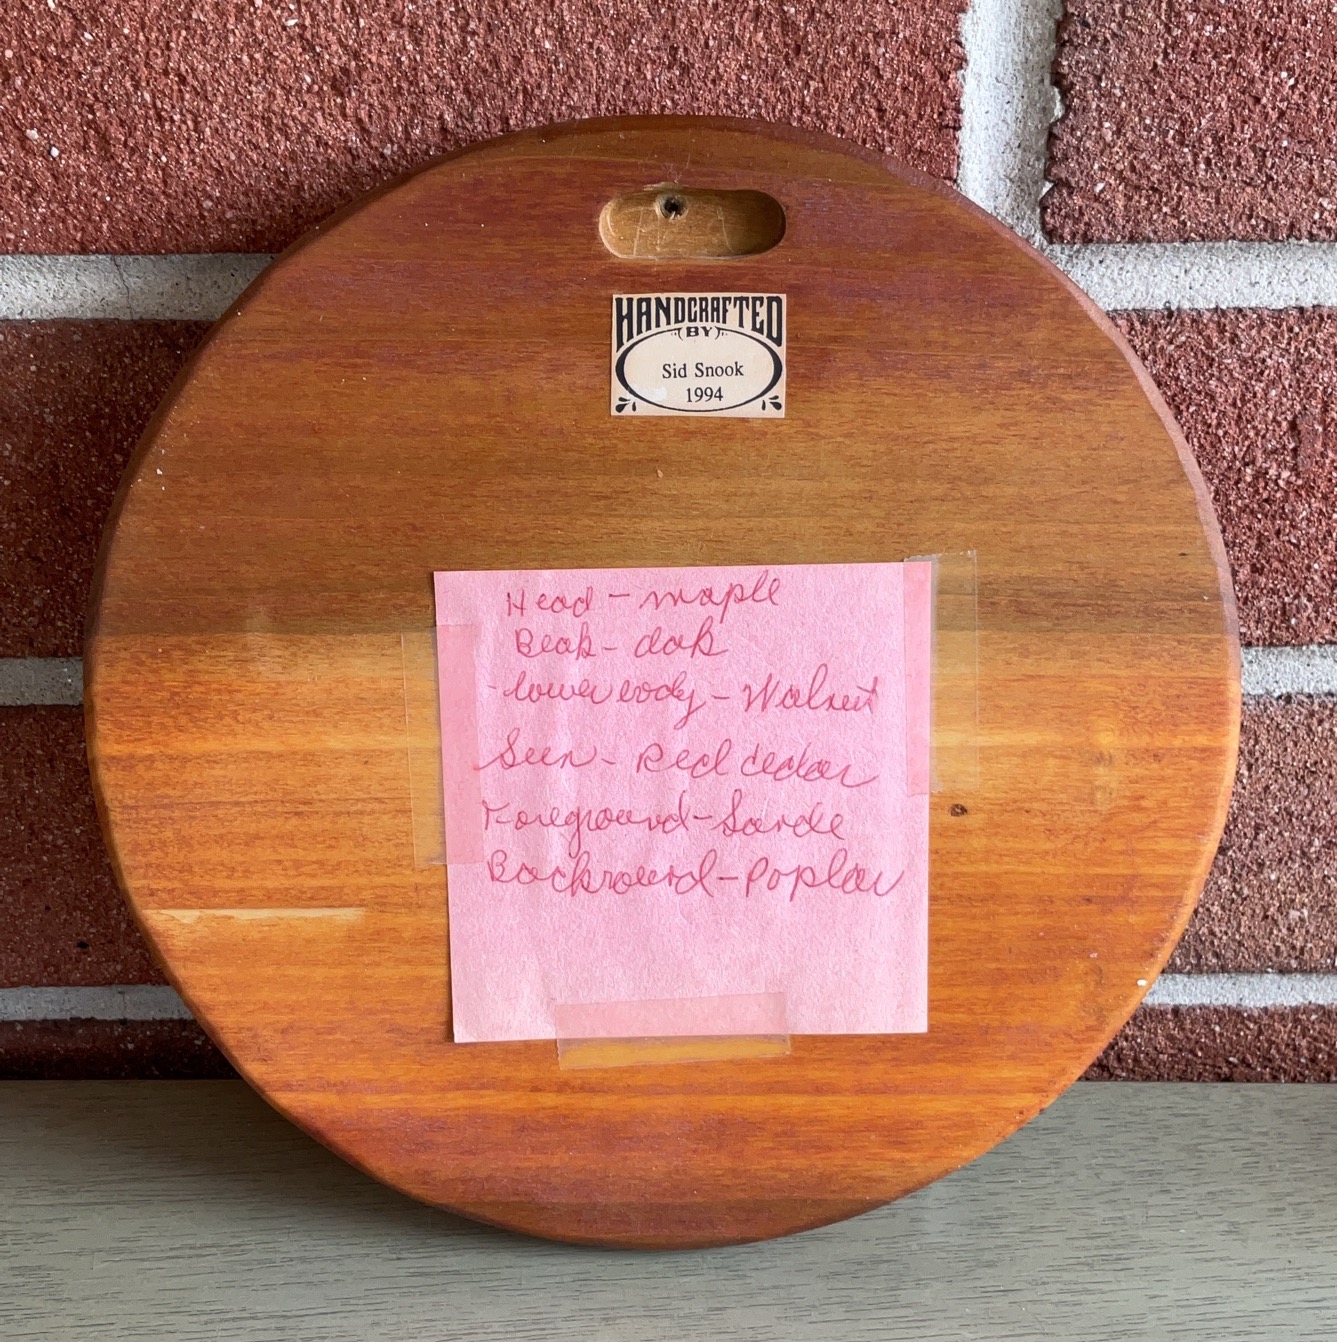 HANDCRAFTED
BY
Sid Snook
1994
Head - maple
Beak - oak
lower body - Walnut
Seen - Red cedar
Foreground - Sande
Backround - Poplar